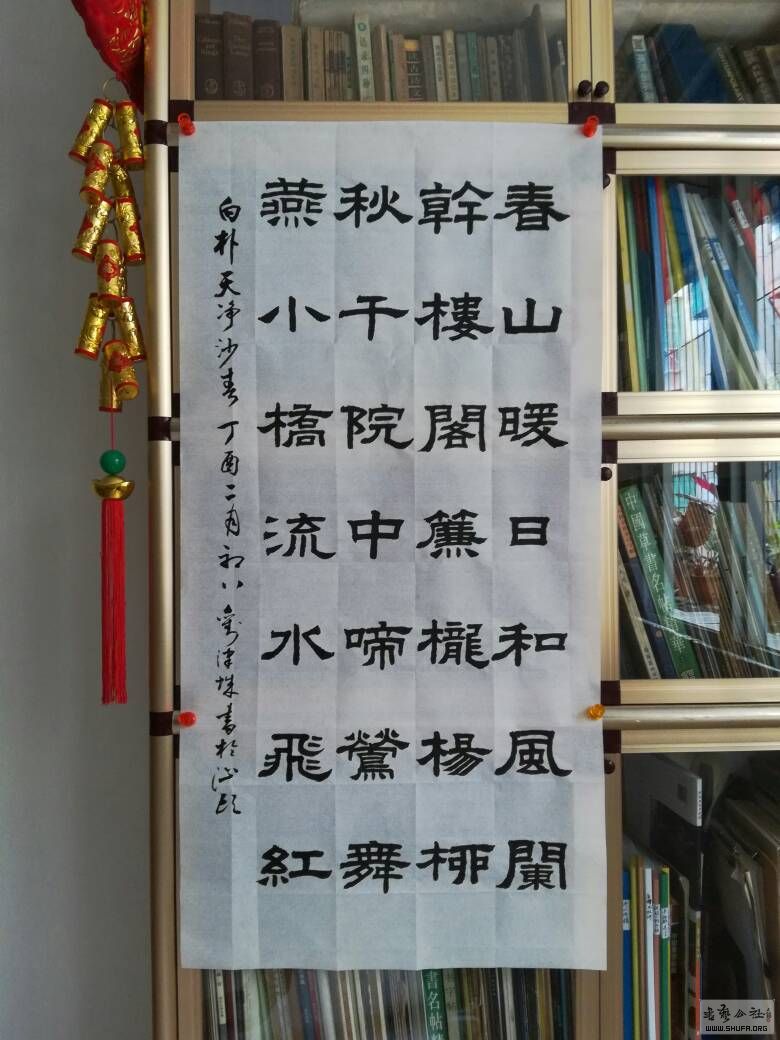 春山暖日和風闌
幹樓閣簾櫳楊柳
秋千院中啼鶯舞
燕小橋流水飛紅
白朴天净沙春 丁酉二月初八 書於
中國草書名帖精華
書名帖
WWW.SHUFA.ORG